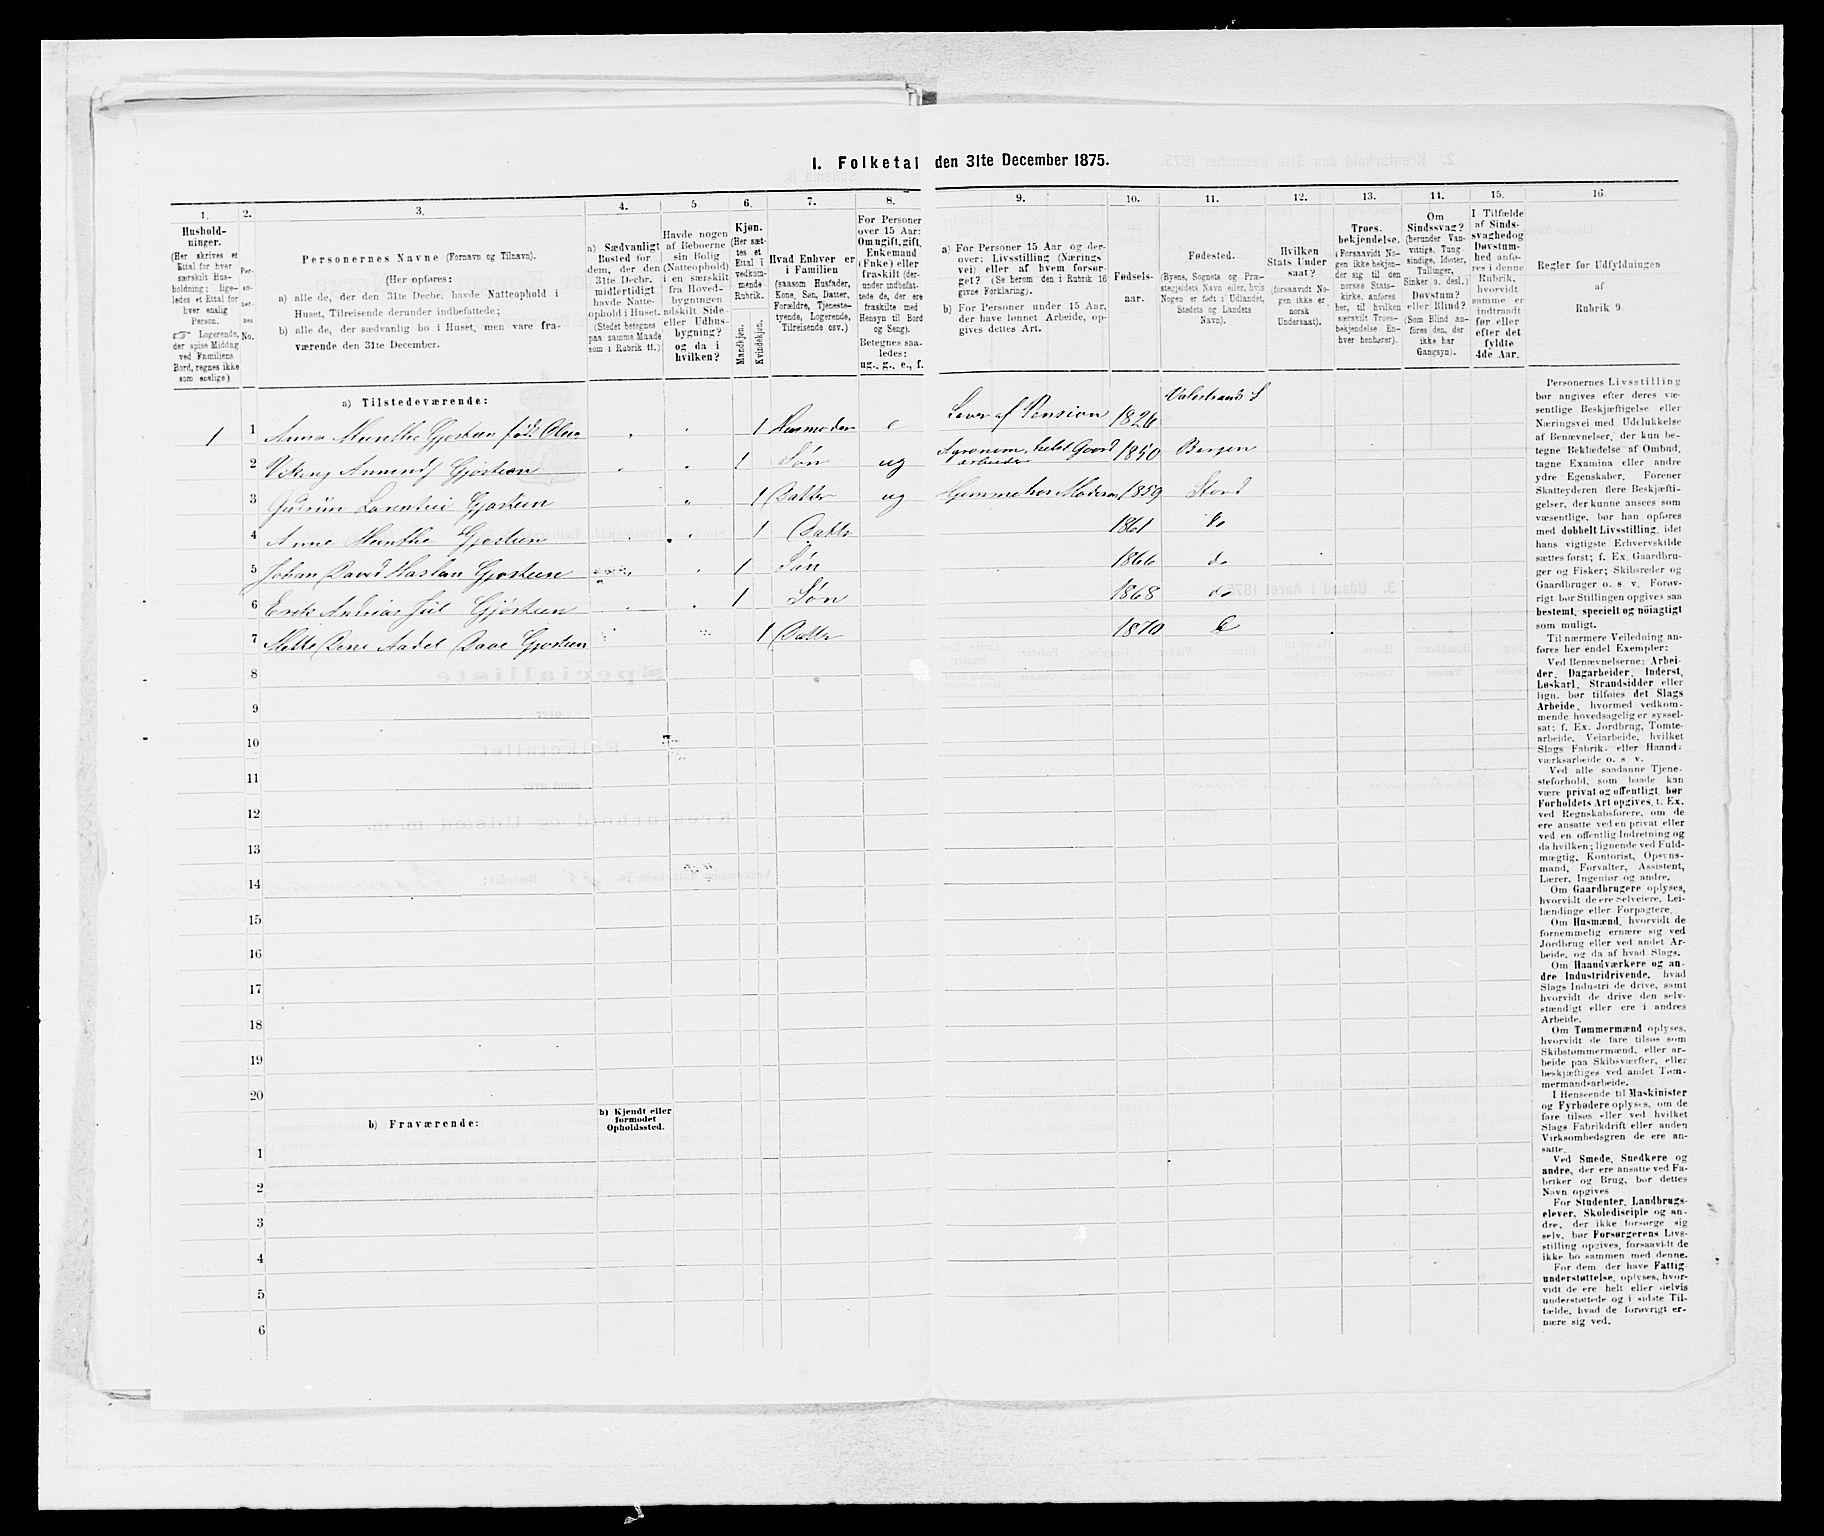 1. Folketal den 31te December 1875.
1.
Hushold-
ninger.
(Her skrives et
Ettal for hver
særskilt Hus-
holdning; lige-
ledes et Ettal for
hver enslig
Person.
☞ Logerende,
der spise Middag
ved Familiens
Bord, regnes ikke
som enslige)
2.
Per-
so-
ner-
nes
No.
3.
Personernes Navne (Fornavn og Tilnavn).
(Her opføres:
a) alle de, der den 31te Decbr. havde Natteophold i
Huset, Tilreisende derunder indbefattede;
b) alle de, der sædvanlig bo i Huset, men vare fra-
værende den 31te December.
4.
a) Sædvanligt
Bosted for
dem, der den
31te Decbr.
midlertidigt
havde Natte-
ophold i Huset.
(Stedet betegnes
paa samme Maade
som i Rubrik 11.)
5
Havde nogen
af Beboerne
sin Bolig
(Natteophold)
i en særskilt
fra Hoved-
bygningen
adskilt Side-
eller Udhus-
bygning?
og da i
hvilken?
6.
Kjøn.
(Her sæt-
tes et
Ettal i
vedkom-
mende
Rubrik.
Mandkjøn.
Kvindekjøn.
7.
Hvad Enhver er
i Familien
(saasom Husfader,
Kone, Søn, Datter,
Forældre, Tjeneste-
tyende, Logerende,
Tilreisende osv.)
8.
For Personer
over 15 Aar:
Om ugift, gift,
Enkemand
(Enke) eller
fraskilt (der-
under indbefat-
tede de, der ere
fraskilte med
Hensyn til Bord
og Seng).
Betegnes saa-
ledes:
ug., g., e., f.
9.
a) For Personer 15 Aar og der-
over: Livsstilling (Nærings-
vei) eller af hvem forsør-
get? (Se herom den i Rubrik 16
givne Forklaring).
b) For Personer under 15 Aar,
der have lønnet Arbeide, op-
gives dettes Art.
10.
Fødsels-
aar.
11.
Fødested.
(Byens, Sognets og Præ-
stegjeldets Navn eller, hvis
Nogen er født i Udlandet,
Stedets og Landets
Navn).
12.
Hvilken
Stats Under
saat?
(forsaavidt No-
gen ikke er
norsk
Undersaat).
13.
Troes-
bekjendelse.
(Forsaavidt No-
gen ikke bekjen-
der sig til den
norske Stats-
kirke, anføres
her, til hvilken
særskilt Troes-
bekjendelse En-
hver henhører).
14.
Om
Sindssvag?
(herunder Van-
vittige, Tung-
sindige, Idioter,
Tullinger,
Sinker o. desl.)
Døvstum?
eller Blind?
(Som Blind an-
føres den, der
ikke har
Gangsyn).
15.
I Tilfælde
af Sinds-
svaghed og
Døvstum-
hed anfø-
res i denne
Rubrik,
hvorvidt
samme er
indtraadt
før eller
efter det
fyldte
4de Aar.
16.
Regler for Udfyldningen
af
Rubrik 9.
a) Tilstedeværende:
1 1 Anna Munthe Gjøsteen født Olsen 1 Husmoder e Lever af Pension 1826 Valestrand S
2 Viking Gjøsteen 1 Søn ug Agronom, Gaard arbeider 1850 Bergen
3 Gudrun Gjøsteen 1 Datter ug Hjemme hos Moderen 1859 Stord
4 Anne Munthe Gjøsteen 1 Datter 1861 do
5 Johan David Haslan Gjøsteen 1 Søn 1866 do
6 Erik Andreas Gjøsteen 1 Søn 1868 do
7 Mette Aadel Daae Gjøsteen 1 Datter 1870
8
9
10
11
12
13
14
15
16
17
18
19
20
b) Fraværende:
b) Kjendt eller
formodet
Opholdssted.
1
2
3
4
5
6
Personernes Livsstilling
bør angives efter deres væ-
sentlige Beskjæftigelse eller
Næringsvei med Udelukkelse
af Benævnelser, der kun be-
tegne Beklædelse af Ombud,
tagne Examina eller andre
ydre Egenskaber. Forener
Skatteyderen flere Beskjæfti-
gelser, der kunne ansees som
væsentlige, bør han opføres
med dobbelt Livsstilling, idet
hans vigtigste Erhvervskilde
sættes først; f. Ex. Gaardbru-
ger og Fisker; Skibsreder og
Gaardbruger o. s. v. Forøv-
rigt bør Stillingen opgives saa
bestemt, specielt og nöiagtigt
som muligt.
Til nærmere Veiledning an-
føres her endel Exempler:
Ved Benævnelserne: Arbei-
der, Dagarbeider, Inderst,
Løskarl, Strandsidder eller
lign. bør tilføies det Slags
Arbeide, hvormed vedkom-
mende hovedsagelig er syssel-
sat; f. Ex. Jordbrug, Tomte-
arbeide, Veiarbeide, hvilket
Slags Fabrik- eller Haand-
værksarbeide o. s. v.
Ved alle saadanne Tjene-
steforhold, som baade kan
være privat og offentligt, bør
Forholdets Art opgives, t. Ex.
ved Regnskabsførere, om de
ere ansatte ved en privat eller
ved en offentlig Indretning og
da hvilken; lignende ved Fuld-
mægtig, Kontorist, Opsyns-
mand, Forvalter, Assistent,
Lærer, Ingeniør og andre.
Om Gaardbrugere oplyses,
hvorvidt de ere Selveiere, Lei-
lændinge eller Forpagtere.
Om Husmænd, hvorvidt de
fornemmelig ernære sig ved
Jordbrug eller ved andet Ar-
beide, og da af hvad Slags.
Om Haandværkere og an-
dre Industridrivende, hvad
Slags Industri de drive, samt
hvorvidt de drive den selv-
stændigt eller ere i andres
Arbeide.
Om Tømmermænd oplyses,
hvorvidt de fare tilsøs som
Skibstømmermænd, eller ar-
beide paa Skibsværfter, eller
beskjæftiges ved andet Tøm-
mermandsarbeide.
I Henseende til Maskinister
og Fyrbødere oplyses, om de
fare tilsøs eller ved hvilket
Slags Fabrikdrift eller anden
Virksomhedsgren de ere an-
satte.
Ved Smede, Snedkere og
andre, der ere ansatte ved Fa-
briker og Brug, bør dettes
Navn opgives
For Studenter, Landbrugs-
elever, Skoledisciple og an-
dre, der ikke forsørge sig
selv, bør Forsørgerens Livs-
stilling opgives, forsaavidt de
ikke bo sammen med denne.
For dem, der have Fattig-
understøttelse, oplyses, hvor-
vidt de ere helt eller delvis
understøttede og i sidste Til-
fælde, hvad de forøvrigt er-
nære sig ved.